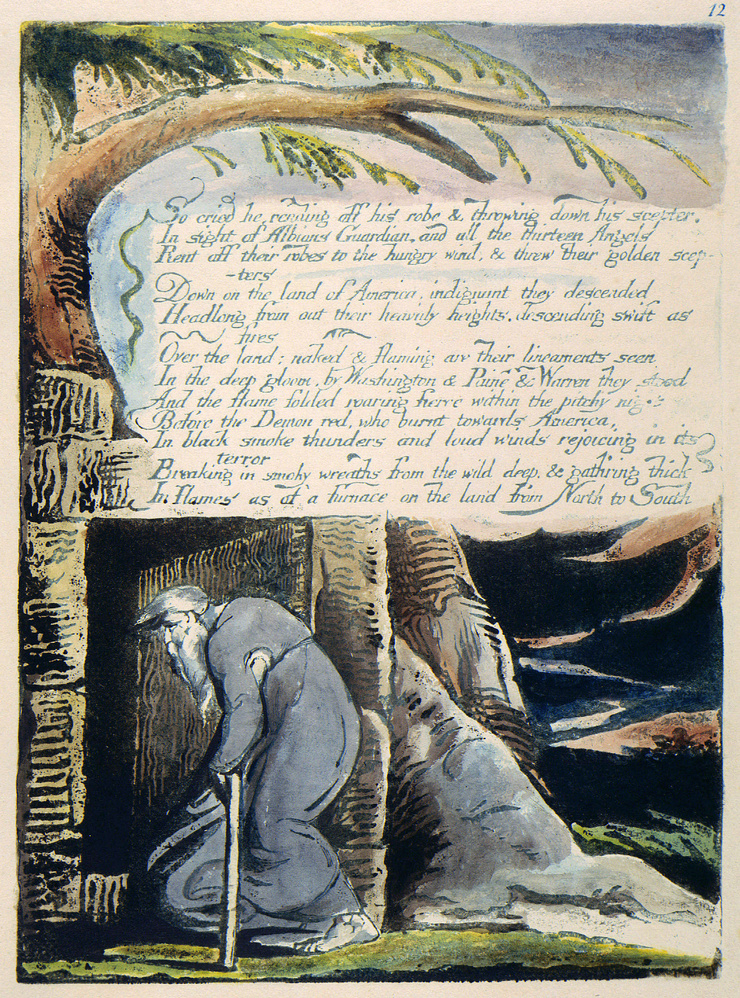 12
So cried he, rending off his robe & throwing down his scepter.
In sight of Albions Guardian, and all the thirteen Angels
Rent off their robes to the hungry wind, & threw their golden scep-
-ters
Down on the land of America, indignant they descended
Headlong from out their heavenly heights, descending swift as
fires
Over the land; naked & flaming are their lineaments seen
In the deep gloom, by Washington & Paine & Warren they stood
And the flame folded roaring fierce within the pitchy night
Before the Demon red, who burnt towards America,
In black smoke thunders and loud winds rejoicing in its
terror
Breaking in smoky wreaths from the wild deep, & gath'ring thick
In flames as of a furnace on the land from North to South